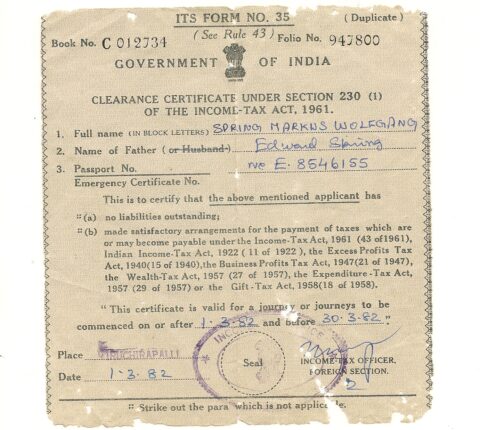 ITS FORM NO. 35 (Duplicate)
Book No. C 012734 (See Rule 43) Folio No. 947800
GOVERNMENT OF INDIA
CLEARANCE CERTIFICATE UNDER SECTION 230 (1)
OF THE INCOME-TAX ACT, 1961.
1. Full name (IN BLOCK LETTERS) SPRING MARKUS WOLFGANG
2. Name of Father (or Husband) Edward Spring
3. Passport No. No E. 8546155
Emergency Certificate No.
This is to certify that the above mentioned applicant has
"(a) no liabilities outstanding;
"(b) made satisfactory arrangements for the payment of taxes which are
or may become payable under the Income-Tax Act, 1961 (43 of 1961),
Indian Income-Tax Act, 1922 (11 of 1922), the Excess Profits Tax
Act, 1940(15 of 1940), the Business Profits Tax Act, 1947(21 of 1947),
the Wealth-Tax Act, 1957 (27 of 1957), the Expenditure-Tax Act,
1957 (29 of 1957) or the Gift-Tax Act, 1958(18 of 1958).
"This certificate is valid for a journey or journeys to be
commenced on or after 1.3.82 and before 30.3.82."
Place TIRUCHIRAPALLI
Seal
INCOME-TAX OFFICER,
FOREIGN SECTION.
Date 1.3.82
"Strike out the para which is not applicable.